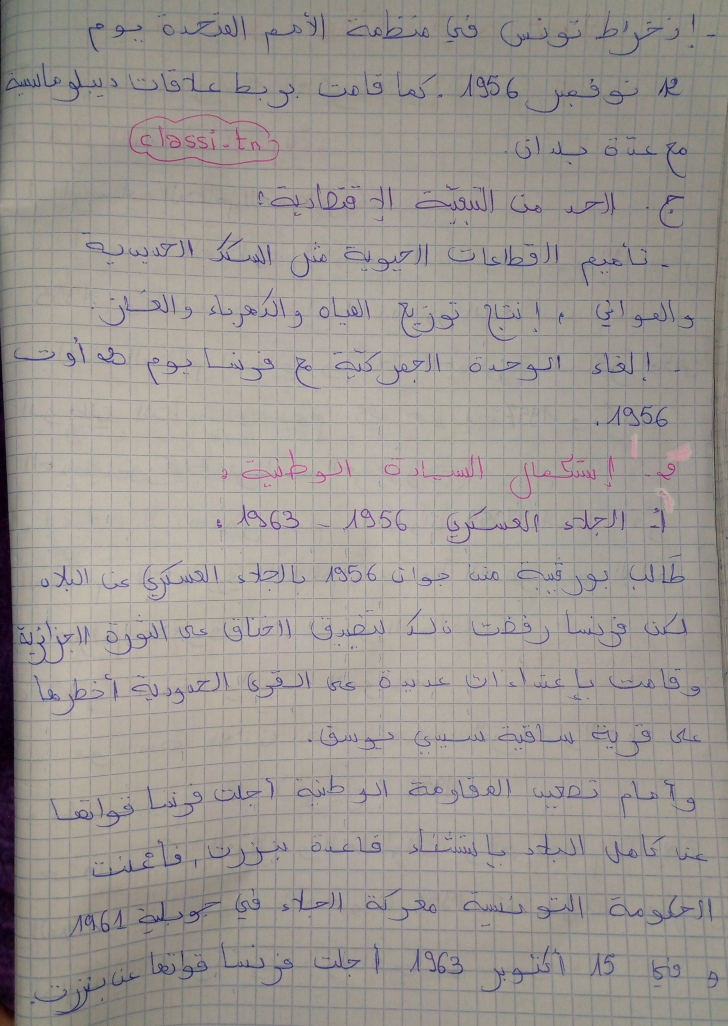 - إنخراط تونس في منظمة الأمم المتحدة يوم
12 نوفمبر 1956. كما قامت بربط علاقات ديبلوماسية
مع عدّة بلدان.
classi-tn
ج. الحد من التبعيّة الإقتصادية:
- تأميم القطاعات الحيوية مثل السكك الحديدية
والمواني، إنتاج توزيع المياه والكهرباء والغاز.
- إلغاء الوحدة الجمركيّة مع فرنسا يوم أوت
1956.
- إستكمال السيادة الوطنية:
أ- الجلاء العسكري 1956 - 1963:
طالب بورقيبة منذ جوان 1956 بالجلاء العسكري عن البلاد
لكن فرنسا رفضت ذلك لتضييق الخناق على الثورة الجزائرية
وقامت بإعتداءات عديدة على القرى الحدودية أخطرها
على قرية ساقية سيدي يوسف.
وأمام تصعيد المقاومة الوطنية أجلت فرنسا قواتها
عن كامل البلاد بإستثناء قاعدة بنزرت, فأعلنت
الحكومة التونسية معركة الجلاء في جويلية 1961
و في 15 أكتوبر 1963 أجلت فرنسا قواتها عن بنزرت.